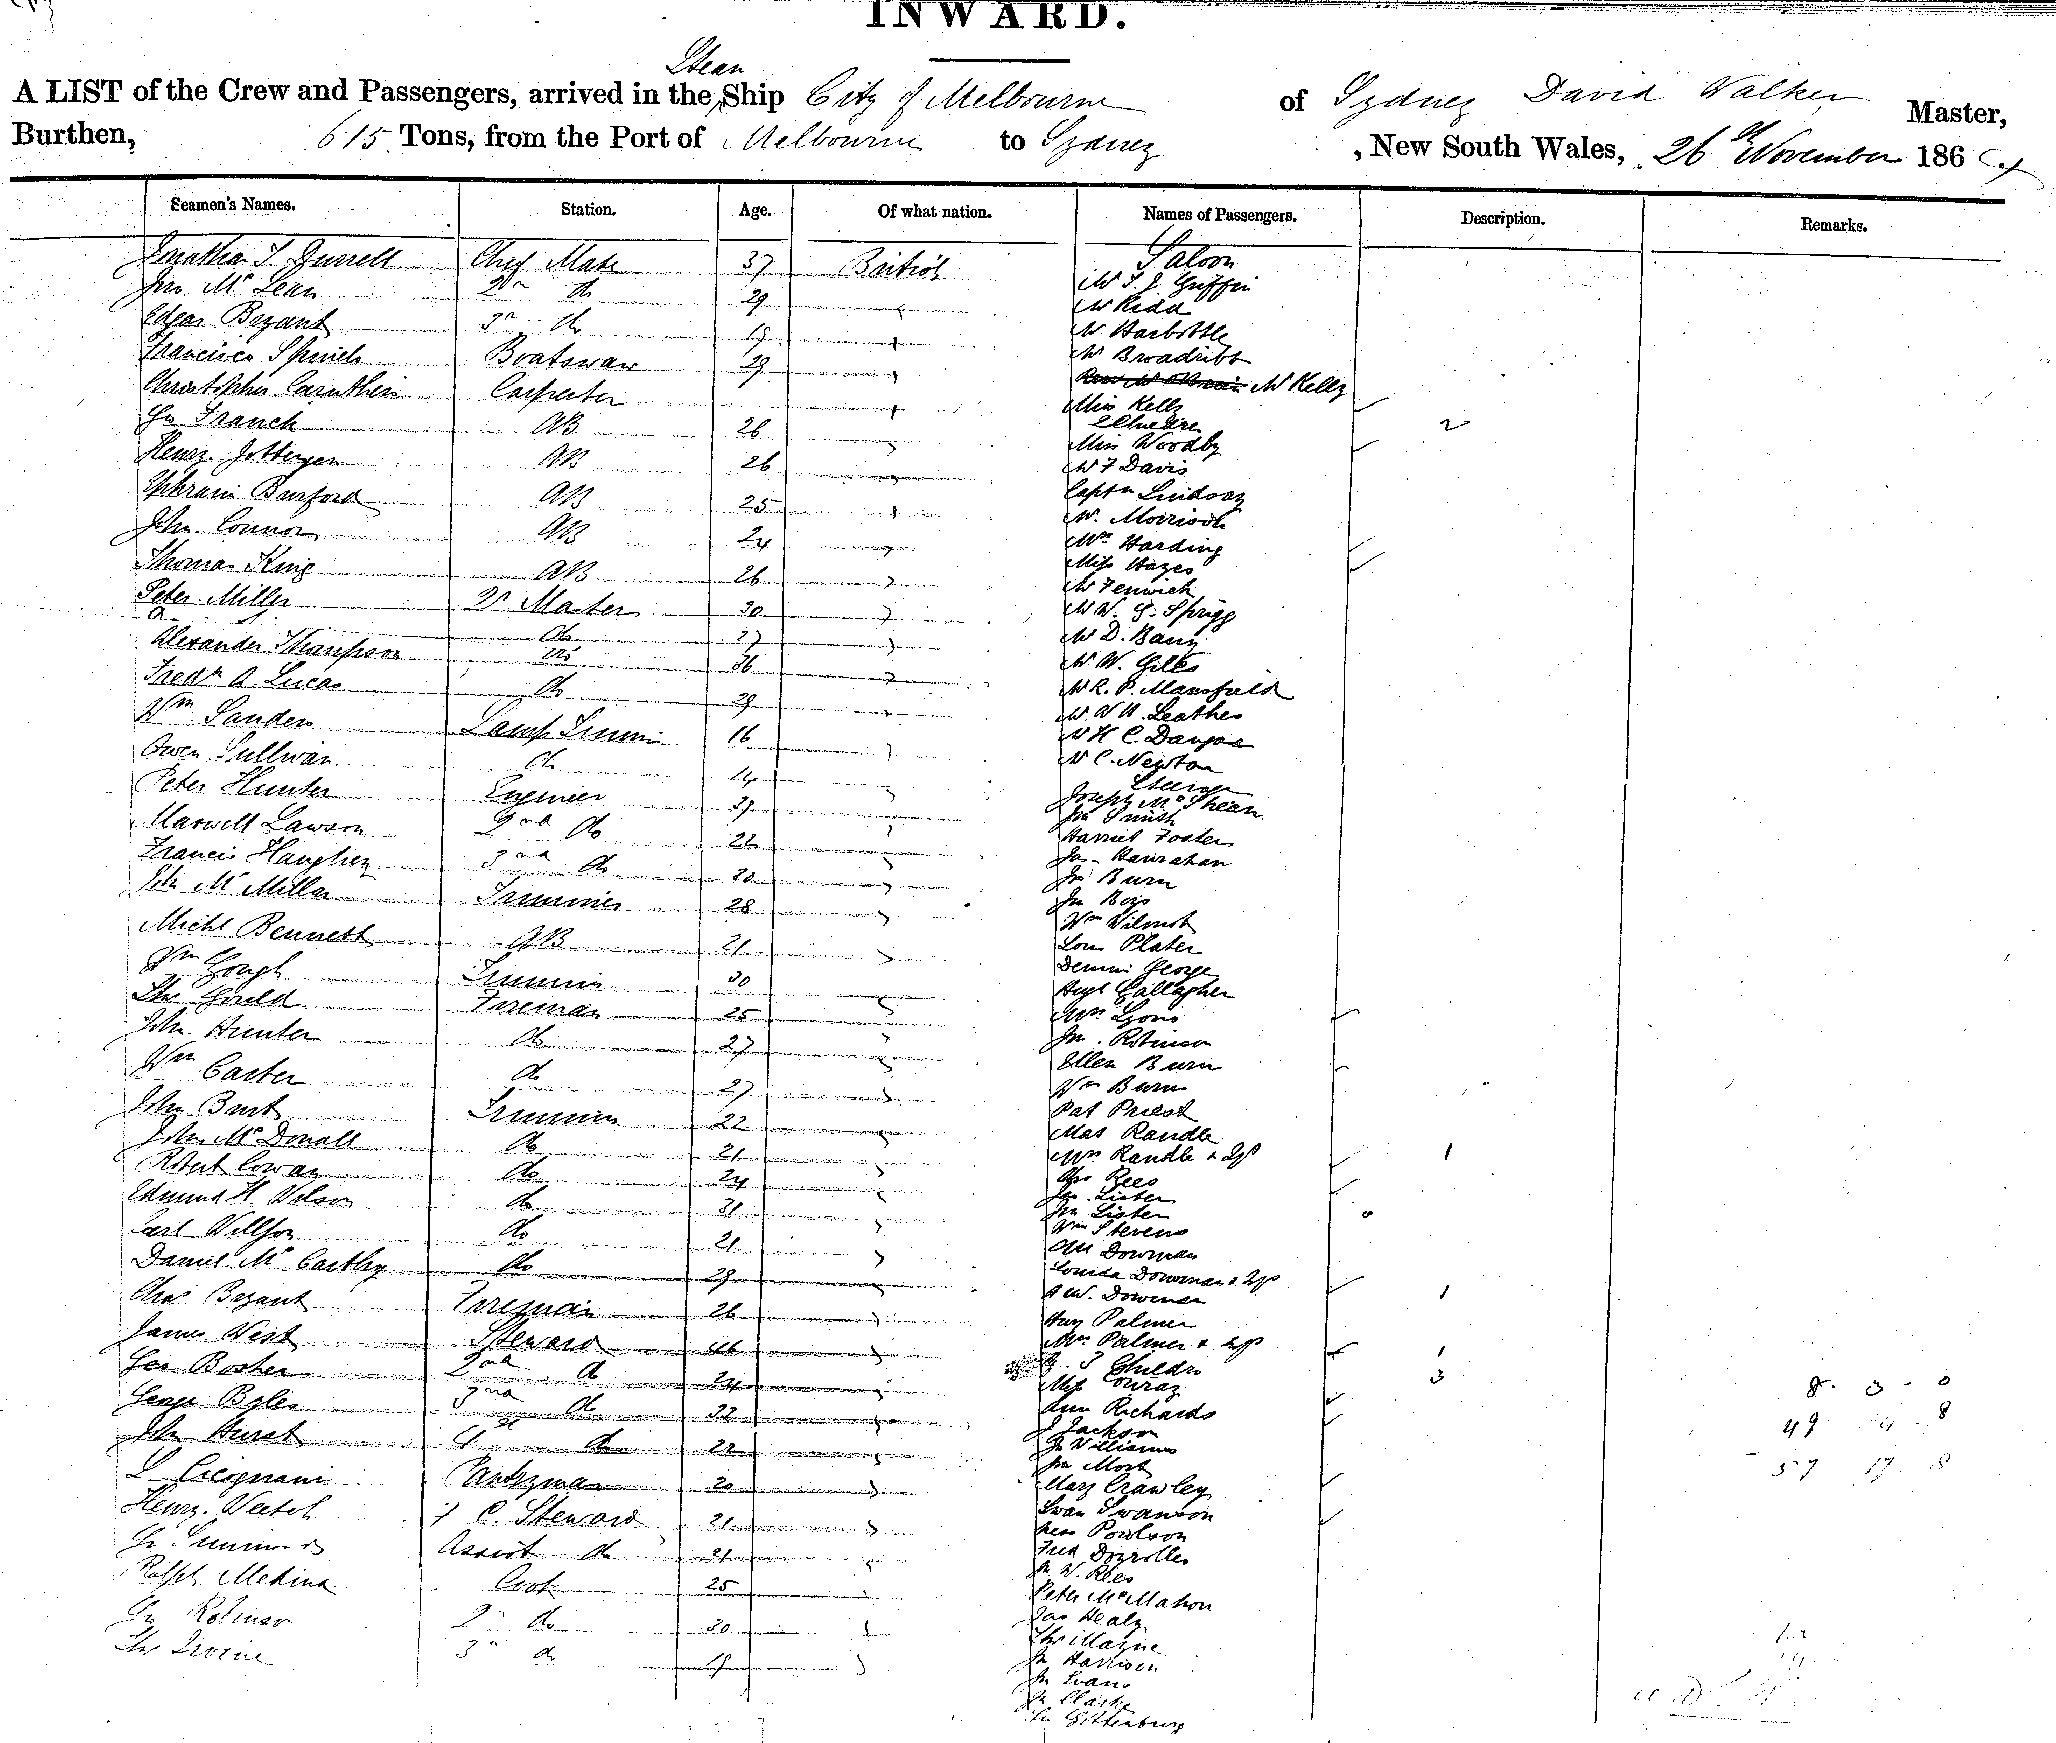 INWARD.
Steam
A LIST of the Crew and Passengers, arrived in the Ship City of Melbourne of Sydney David Walker Master,
Burthen, 615 Tons, from the Port of Melbourne to Sydney, New South Wales, 26th November 186
Seamen's Names. Station. Age. Of what nation. Names of Passengers. Description. Remarks.
Saloon
Chief Mate 37 British
Jno McLean 2nd do 29
Edgar Bryant 3rd do 19
Boatswain 29
Christopher Caruthers Carpenter
French AB 26
Henry AB 26
Ephraim Burford AB 25
John Connor AB 24
Thomas King AB 26
Peter Miller Qr Master 30
do 27
Alexander Thompson do 36
Fredk A Lucas do 29
Wm Sanders Lamp Trimmer 16
Owen Sullivan do 14
Peter Hunter Engineer 39
Maxwell Lawson 2nd do 22
Francis Haughey 3rd do
John McMillan Trimmer 28
Michl Bennett AB 21
Wm Gough Trimmer 30
Thos Gould Fireman 25
John Hunter do 27
Wm Carter do 27
John Trimmer 22
John McDonall do 21
Robert Cowan do 24
Edmund H. Wilson do 31
Carl Willson do 21
Daniel McCarthy do 29
Chas Bryant Fireman 26
James West Steward 46
Geo Bosher 2nd do 24
George Byles 3rd do 32
John Hurst 4 do 22
Pantryman 20
Henry Veitch F C. Steward 21
Assist do 21
Ralph Medina Cook 25
Jn Robinson 2nd do 30
Thos Irvine 3rd do 19
Mr T. J. Griffin
Mr Kidd
Mr Harbottle
Mr Broadribb
Mr Kelly
Miss Kelly
2 Children 2
Miss Woodby
Mr F Davis
Captn Lindsay
Mr. Morrison
Mrs Harding
Miss Hayes
Mr Fenwick
Mr W. G. Sprigg
Mr D. Barry
Mr W. Giles
Mr R. P. Mansfield
Mr. W H. Leathes
Mr H C Dangar
Mr C. Newton
Steerage
Joseph McShean
Jno Smith
Harriet Foster
Jas Hanrahan
Jn Burn
Jn Boys
Wm Wilmot
Plater
Dennis George
Hugh Gallagher
Mrs Lyons
Jn. Robinson
Ellen Burn
Wm Burn
Pat Priest
Randle
Mrs Randle & Inft 1
Rees
Jas Lister
Jn Lister
Wm Stevens
Dowman
Louisa Dowman & Inft 1
W. Dowman
Palmer
Mrs Palmer & Inft 1
3 Children 3
Miss Conray
Ann Richards
J Jackson
Jn Williams
Jn Mort
Mary Crawley
Swan Swanson
Poulson
Fred
Jn W. Rees
Peter McMahon
Jas Healy
Thos Mayne
Jn Harrison
Jn Evans
Jn Clarke
Jn Gottenburg
8. 3 - 0
49 14 8
57 17 8